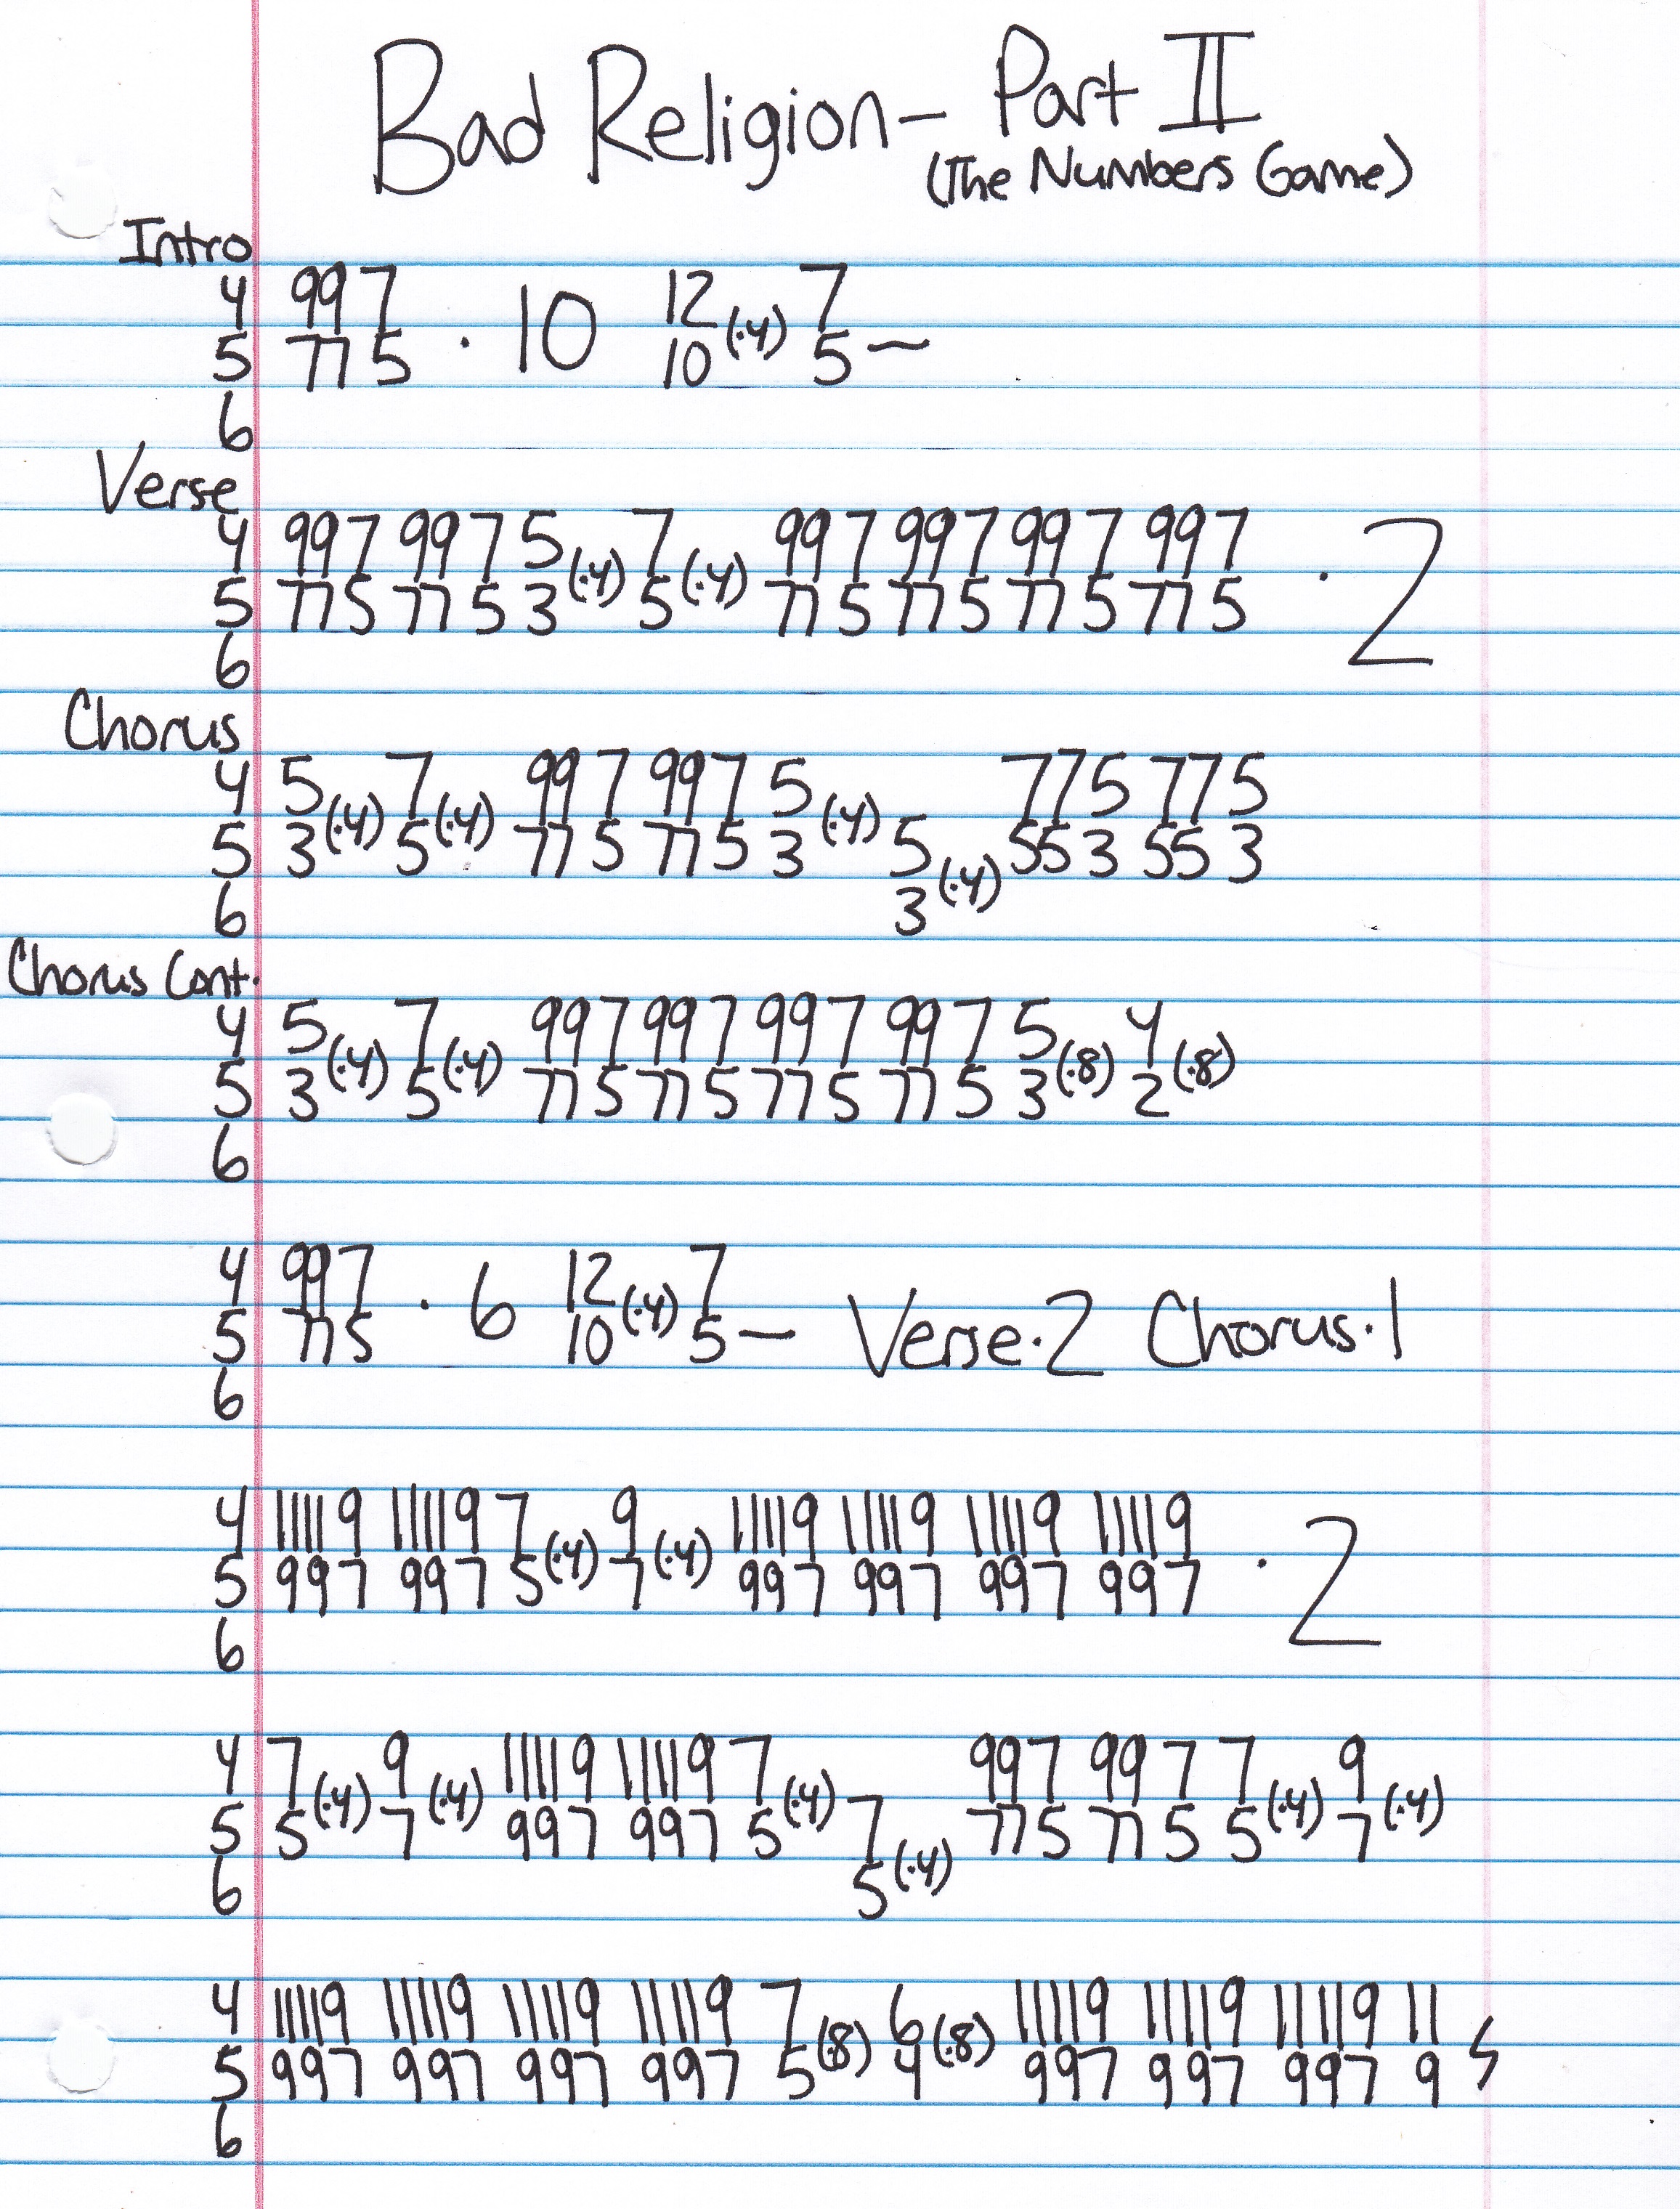 Bad Religion - Part II
(The Numbers Game)
Intro
4 997 · 10 12 (·4) 7
5 775 10 5 —
6
Verse
4 997 997 5 (·4) 7 (·4) 997 997 997 997 · 2
5 775 775 3 5 775 775 775 775
6
Chorus
4 5 (·4) 7 (·4) 997 997 5 (·4) 775 775
5 3 5 775 775 3 5 (·4) 553 553
6 3
Chorus Cont.
4 5 (·4) 7 (·4) 997 997 997 997 5 (·8) 4 (·8)
5 3 5 775 775 775 775 3 2
6
4 997 · 6 12 (·4) 7 Verse·2 Chorus·1
5 775 10 5 —
6
4 11119 11119 7 (·4) 9 (·4) 11119 11119 11119 11119 · 2
5 997 997 5 7 997 997 997 997
6
4 7 (·4) 9 (·4) 11119 11119 7 (·4) 997 997 7 (·4) 9 (·4)
5 5 7 997 997 5 7 (·4) 775 775 5 7
6 5
4 11119 11119 11119 11119 7 (·8) 6 (·8) 11119 11119 11119 11
5 997 997 997 997 5 4 997 997 997 9
6